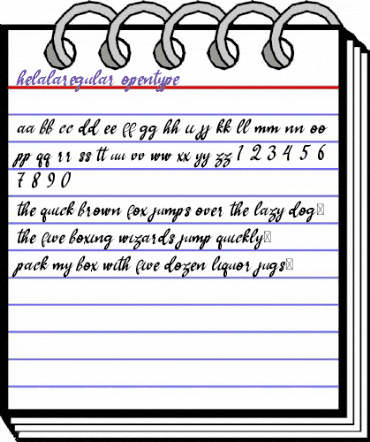 helalaregular opentype
aa bb cc dd ee ff gg hh ii jj kk ll mm nn oo
pp qq rr ss tt uu vv ww xx yy zz 1 2 3 4 5 6
7 8 9 0
the quick brown fox jumps over the lazy dog
the five boxing wizards jump quickly
pack my box with five dozen liquor jugs